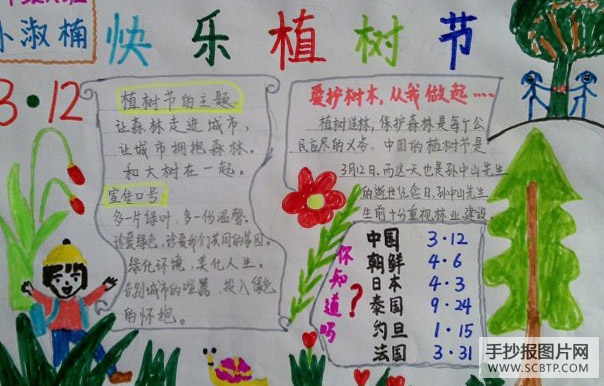 小淑楠
快乐植树节
3·12
植树节的主题
让森林走进城市,
让城市拥抱森林.
和大树在一起。
宣传口号
多一片绿叶,多一份温馨。
珍爱绿色,珍爱我们共同的家园。
绿化环境,美化人生。
告别城市的喧嚣,投入绿色
的怀抱。
爱护树木,从我做起····
植树造林,保护森林是每个公
民应尽的义务。中国的植树节是
3月12日.而这一天也是孙中山先生
的逝世纪念日.孙中山先生
生前十分重视林业建设.
你知道吗?
中国 3·12
朝鲜 4·6
日本 4·3
泰国 9·24
约旦 1·15
法国 3·31
手抄报图片网
WWW.SCBTP.COM